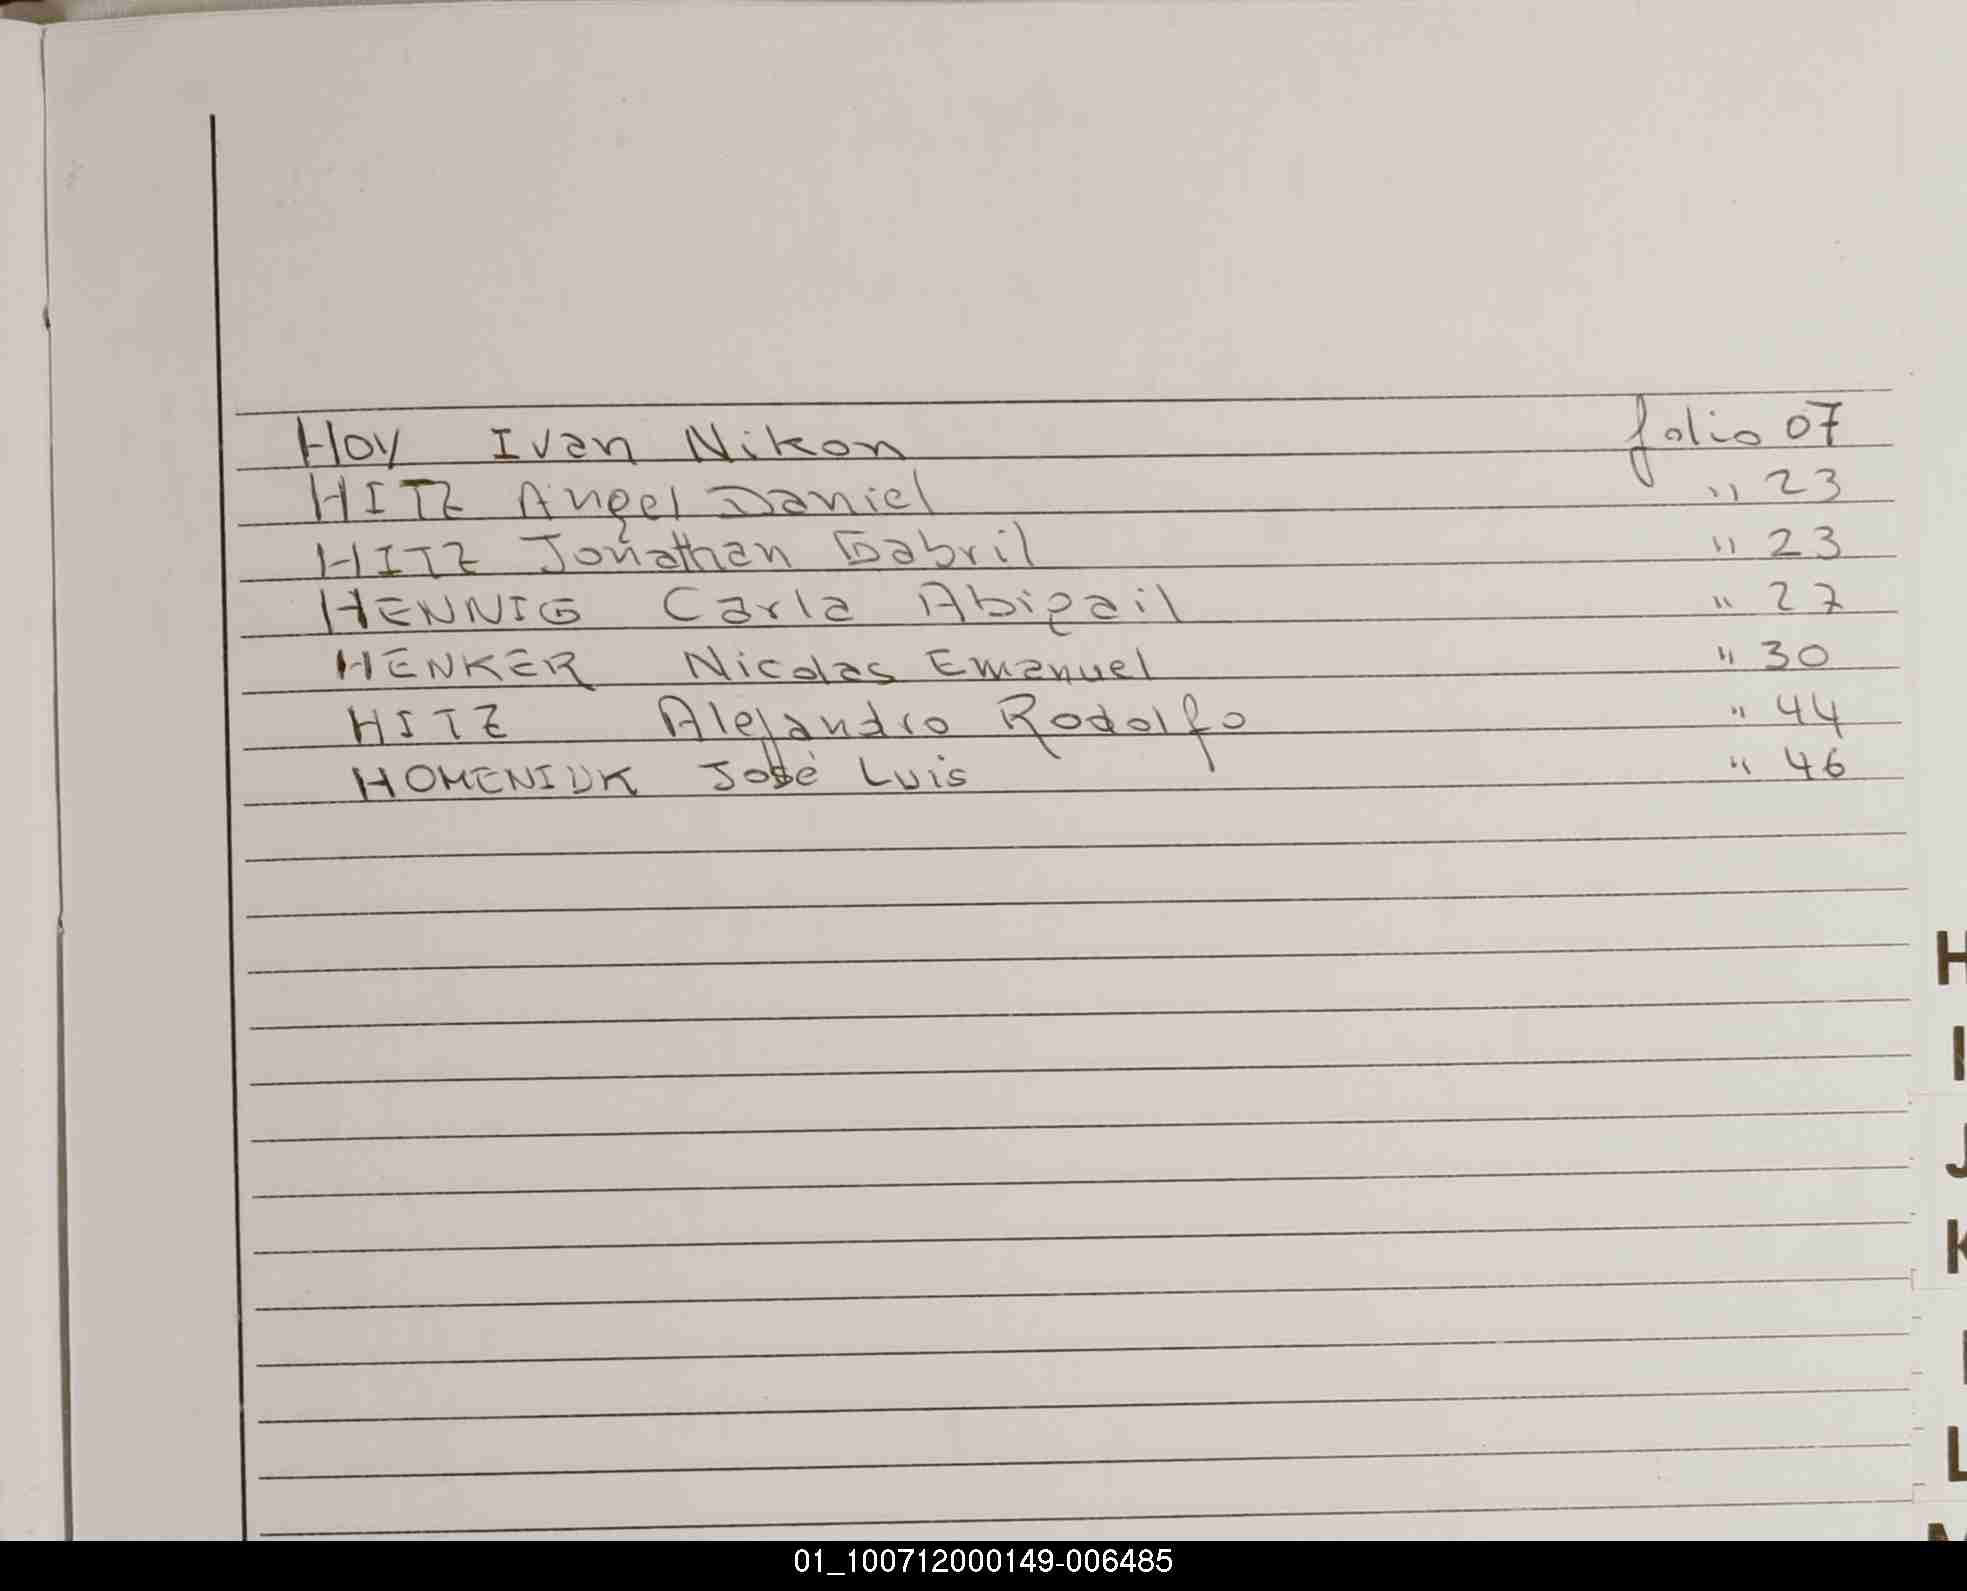 Hoy Ivan Nikon folio 07
HITZ Angel Daniel " 23
HITZ Jonathan Gabril " 23
HENNIG Carla Abigail " 27
HENKER Nicolas Emanuel " 30
HITZ Alejandro Rodolfo " 44
HOMENIUK José Luis " 46
H
I
J
K
L
M
01_100712000149-006485